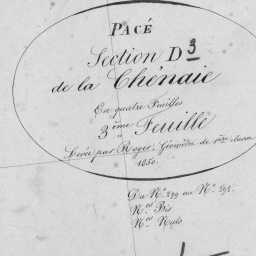 PACÉ
Section D 3
de la Chênaie
En quatre Feuilles
3ème Feuille
Levée par Roger, Géomètre de
1850.
Du N° 279 au N°
Nos Bis
Nos Nuls